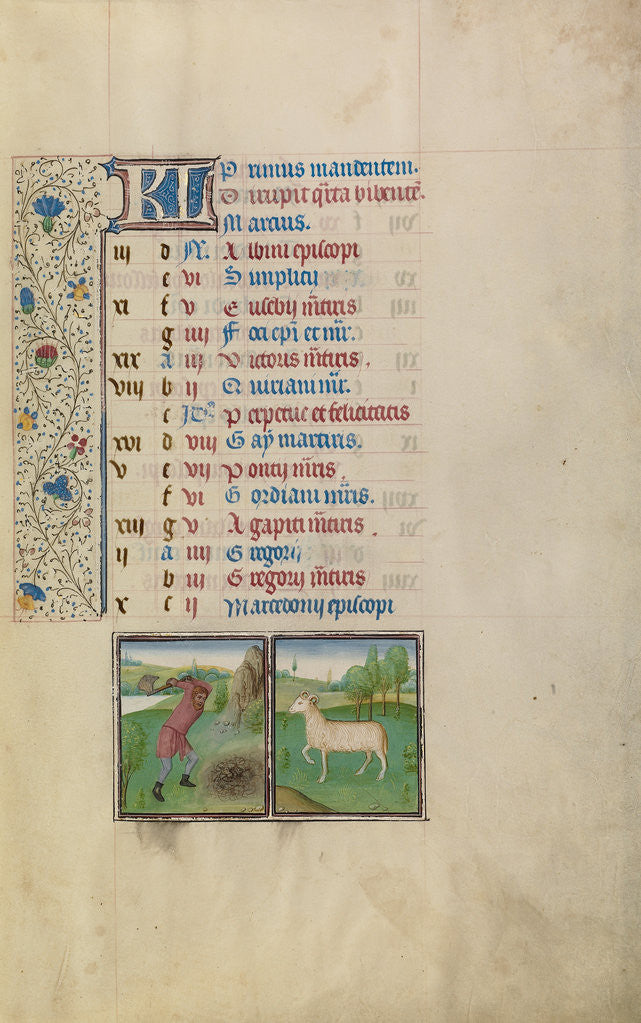 Kl Primus mandentem.
Dirupit q̄rta bibentē.
Marcius.
iij d N. Albini episcopi
e vi Simplicij
xi f v Eusebij m̄tiris
g iiij Foci ep̄i et mr̄.
xix A iij Victoris m̄tiris.
viij b ij Quiriani mr̄.
c Perpetue et felicitatis
xvi d viij Gaÿ martiris.
v e vij Pontij m̄ris.
f vi Gordiani mr̄ris.
xiij g v Agapiti m̄tiris.
ij a iiij Gregorij
b iij Gregorij m̄tiris
x c ij Marcedonij episcopi